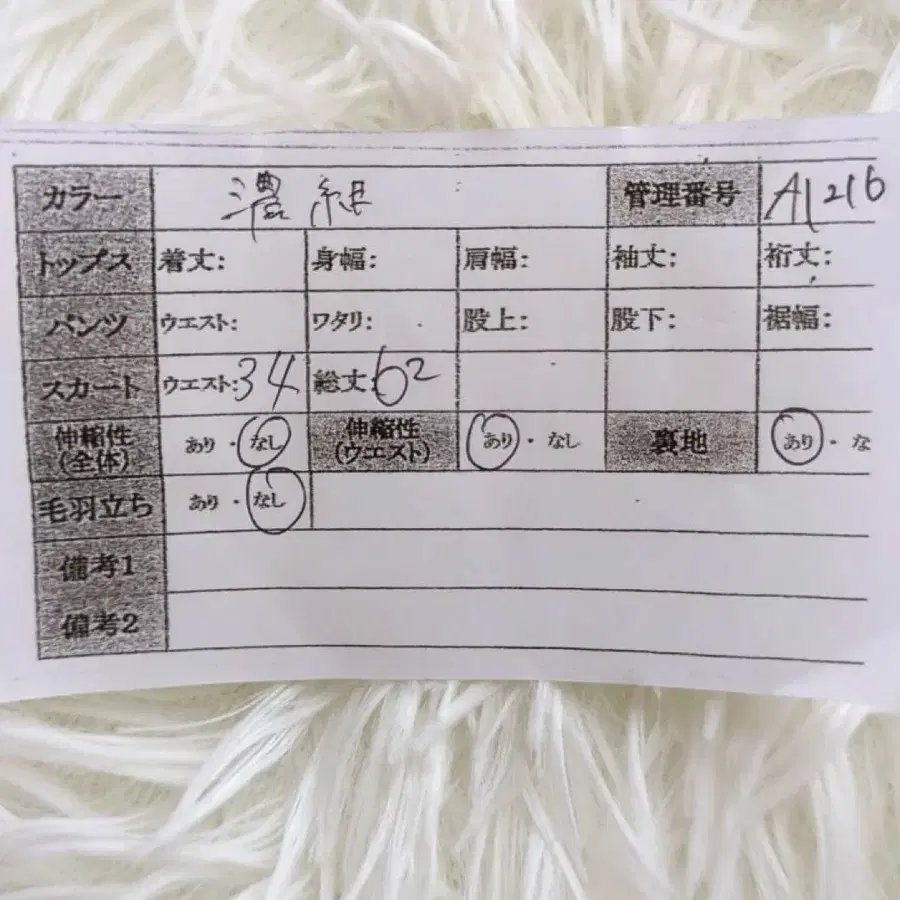 カラー 濃紺 管理番号 A1216
トップス 着丈: 身幅: 肩幅: 袖丈: 裄丈:
パンツ ウエスト: ワタリ: 股上: 股下: 裾幅:
スカート ウエスト:34 総丈:62
伸縮性(全体) あり・なし 伸縮性(ウエスト) あり・なし 裏地 あり・な
毛羽立ち あり・なし
備考1
備考2